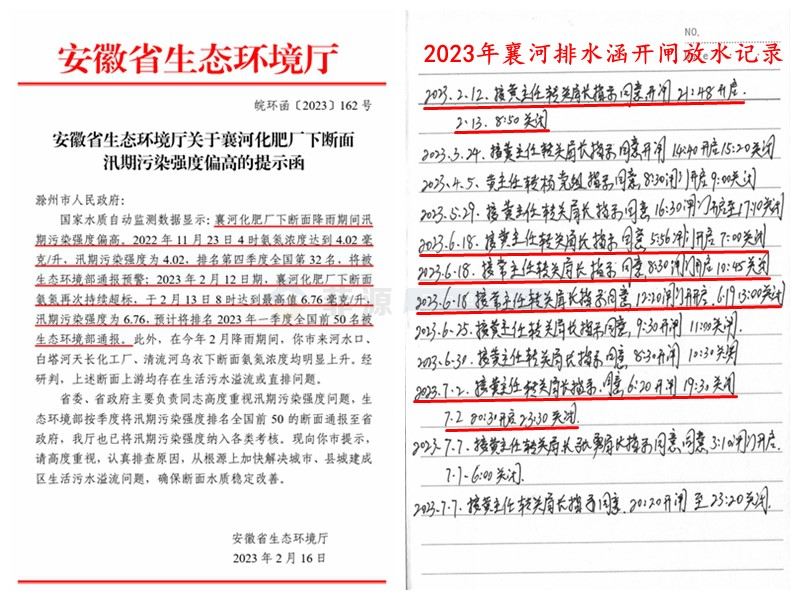 安徽省生态环境厅
皖环函〔2023〕162 号
安徽省生态环境厅关于襄河化肥厂下断面
汛期污染强度偏高的提示函
滁州市人民政府：
国家水质自动监测数据显示：襄河化肥厂下断面降雨期间汛
期污染强度偏高。2022 年 11 月 23 日 4 时氨氮浓度达到 4.02 毫
克/升，汛期污染强度为 4.02，排名第四季度全国第 32 名，将被
生态环境部通报预警；2023 年 2 月 12 日期，襄河化肥厂下断面
氨氮再次持续超标，于 2 月 13 日 8 时达到最高值 6.76 毫克/升，
汛期污染强度为 6.76，预计将排名 2023 年一季度全国前 50 名被
生态环境部通报。此外，在今年 2 月降雨期间，你市来河水口、
白塔河天长化工厂、清流河乌衣下断面氨氮浓度均明显上升。经
研判，上述断面上游均存在生活污水溢流或直排问题。
省委、省政府主要负责同志高度重视汛期污染强度问题，生
态环境部按季度将汛期污染强度排名全国前 50 的断面通报至省
政府，我厅也已将汛期污染强度纳入各类考核。现向你市提示，
请高度重视，认真排查原因，从根源上加快解决城市、县城建成
区生活污水溢流问题，确保断面水质稳定改善。
安徽省生态环境厅
2023 年 2 月 16 日
NO.
2023年襄河排水涵开闸放水记录
2023.2.12.接黄主任转关局长指示同意开闸 21:48开启.
2.13. 8:50关闭
2023.3.24.接黄主任转关局长指示同意开闸 14:40开启 15:20关闭
2023.4.5.黄主任转杨党组指示同意,8:30闸门开启 9:00关闭
2023.5.29.接黄主任转关局长指示同意,16:30闸门开启至17:10关闭
2023.6.18.接黄主任转关局长指示同意 5:56闸门开启 7:00关闭
2023.6.18.接常主任转关局长指示同意,8:30闸门开启 10:45关闭
2023.6.18 接常主任转关局长指示同意,12:20闸门开启. 6.19 13:00关闭
2023.6.25.接黄主任转关局长指示同意, 9:30开闸 11:00关闭.
2023.6.30.接黄主任转关局长指示同意 8:30开闸 10:30关闭
2023.7.2.接黄主任转关局长指示.同意 6:20开闸 19:30关闭
7.2 20:30开启 23:30关闭.
2023.7.7.接黄主任转关局长指示同意,同意 3:10闸门开启.
7.7-6:00关闭.
2023.7.7.接黄主任转关局长指示同意. 20:20开闸 至 23:20关闭.